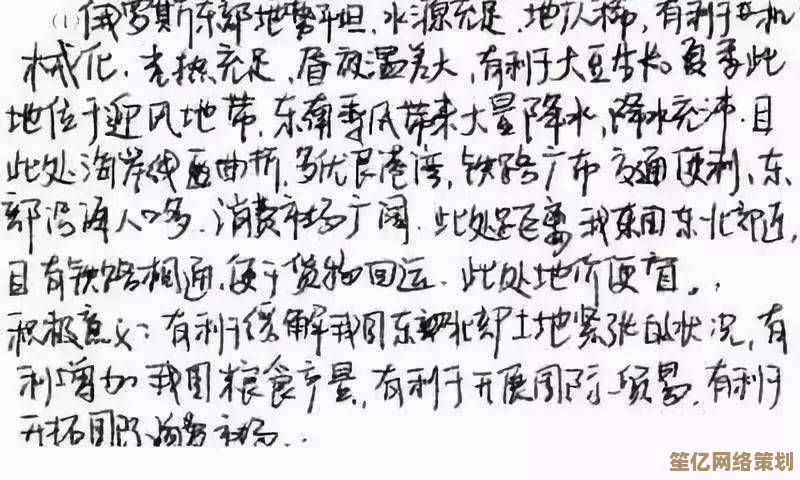 (1)俄罗斯东部地势平坦,水源充足,地广人稀,有利于农机
械化.光热充足,昼夜温差大,有利于大豆生长.夏季此
地位于迎风地带,东南季风带来大量降水,降水充沛.且
此处海岸线曲折,多优良港湾,铁路广布交通便利、东
部沿海人口多.消费市场广阔.此处距离我国东北部近,
且有铁路相通,便于货物回运.此处地价便宜。
积极意义:有利于缓解我国东北部土地紧张的状况,有
利增加我国粮食产量,有利于开展国际贸易,有利于
开拓国际消费市场..
笙亿网络策划